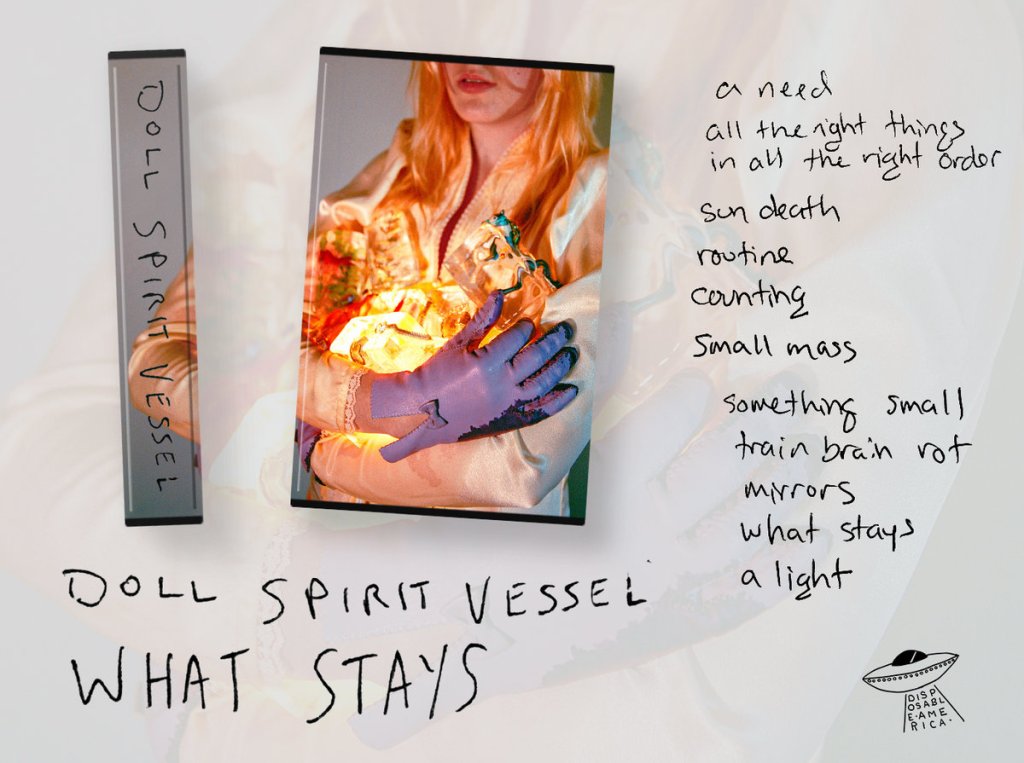 DOLL SPIRIT VESSEL
a need
all the right things
in all the right order
sun death
routine
counting
small mass
something small
train brain rot
mirrors
what stays
a light
DOLL SPIRIT VESSEL
WHAT STAYS
DISP
OSABL
E·AME
RICA·